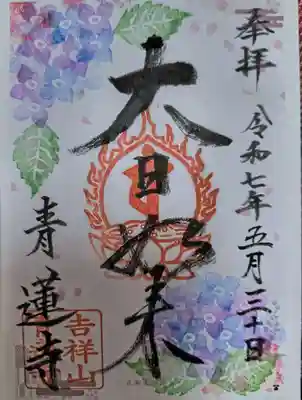 奉拝
令和七年五月三十日
大日如来
青蓮寺
吉祥山